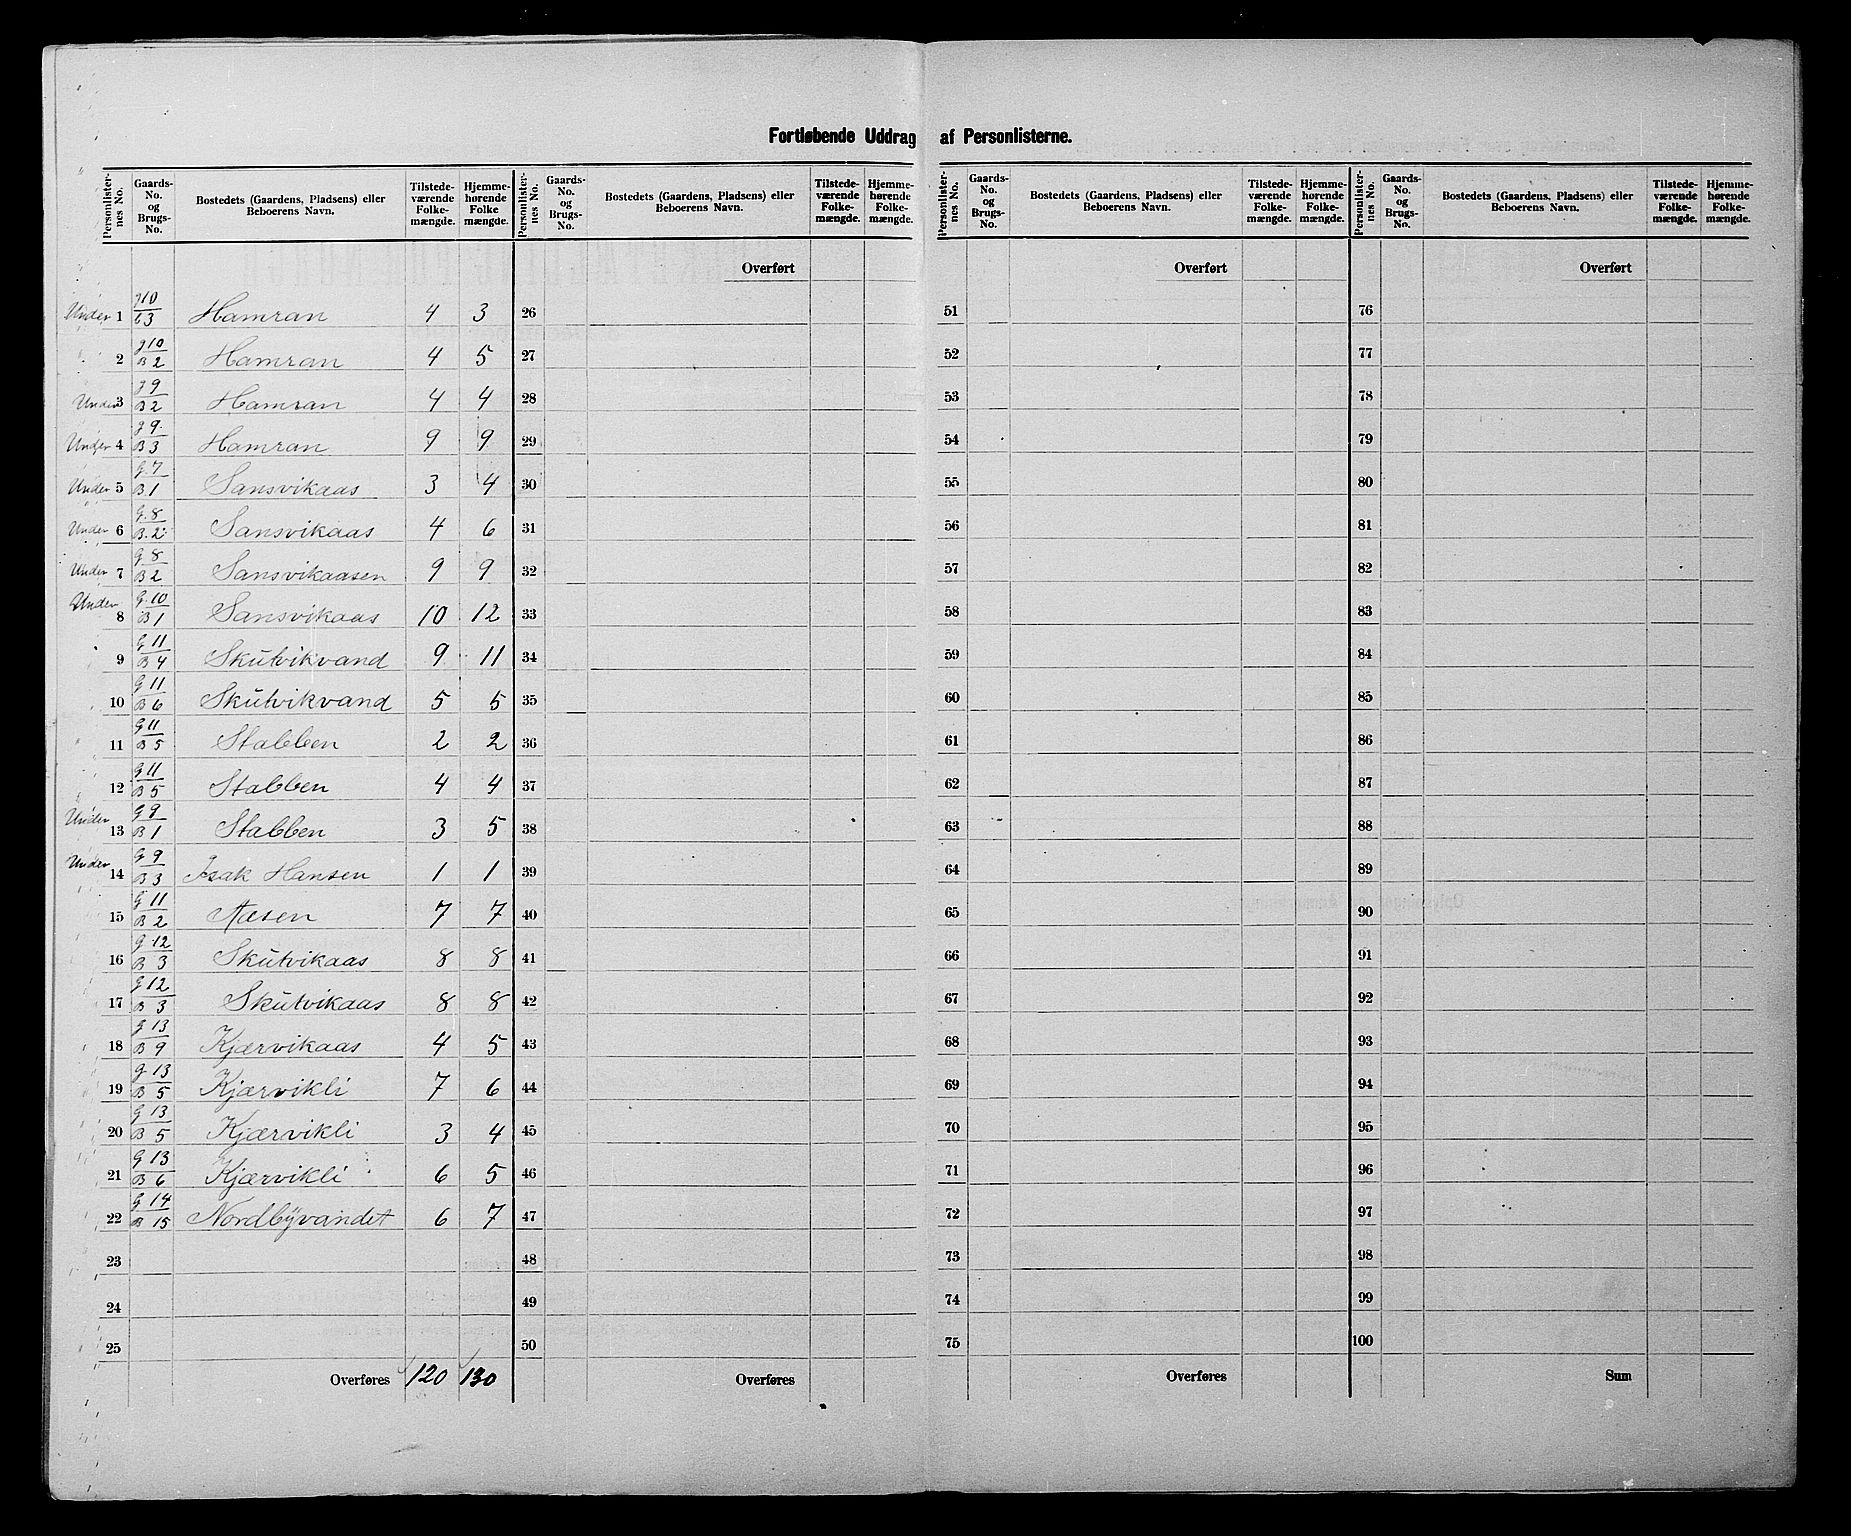 Fortløbende Uddrag af Personlisterne.
Personlister-nes No. | Gaards-No. og Brugs-No. | Bostedets (Gaardens, Pladsens) eller Beboerens Navn. | Tilstede-værende Folke-mængde. | Hjemme-hørende Folke mængde.
Under 1 | 10/3 | Hamran | 4 | 3
2 | 10/B 2 | Hamran | 4 | 5
Under 3 | 9/B 2 | Hamran | 4 | 4
Under 4 | 9./B 3 | Hamran | 9 | 9
Under 5 | G. 7/B 1 | Sansvikaas | 3 | 4
Under 6 | G. 8/B. 2 | Sansvikaas | 4 | 6
Under 7 | G 8/B 2 | Sansvikaasen | 9 | 9
Under 8 | G. 10/B 1 | Sansvikaas | 10 | 12
9 | G 11/B 4 | Skutvikvand | 9 | 11
10 | G 11/B 6 | Skutvikvand | 5 | 5
11 | G 11/B 5 | Stabben | 2 | 2
12 | G 11/B 5 | Stabben | 4 | 4
Under 13 | G 9/B 1 | Stabben | 3 | 5
Under 14 | G 9/B 3 | Isak Hansen | 1 | 1
15 | G 11/B 2 | Aasen | 7 | 7
16 | G 12/B 3 | Skutvikaas | 8 | 8
17 | G 12/B 3 | Skutvikaas | 8 | 8
18 | G 13/B 9 | Kjærvikaas | 4 | 5
19 | G 13/B 5 | Kjærvikli | 7 | 6
20 | G 13/B 5 | Kjærvikli | 3 | 4
21 | G 13/B 6 | Kjærvikli | 6 | 5
22 | G 14/B 15 | Nordbyvandet | 6 | 7
23
24
25
Overføres | 120 | 130
Personlister-nes No. | Gaards-No. og Brugs-No. | Bostedets (Gaardens, Pladsens) eller Beboerens Navn. | Tilstede-værende Folke-mængde. | Hjemme-hørende Folke-mængde.
Overført
26
27
28
29
30
31
32
33
34
35
36
37
38
39
40
41
42
43
44
45
46
47
48
49
50
Overføres
Personlister-nes No. | Gaards-No. og Brugs-No. | Bostedets (Gaardens, Pladsens) eller Beboerens Navn. | Tilstede-værende Folke-mængde. | Hjemme-hørende Folke-mængde.
Overført
51
52
53
54
55
56
57
58
59
60
61
62
63
64
65
66
67
68
69
70
71
72
73
74
75
Overføres
Personlister-nes No. | Gaards-No. og Brugs-No. | Bostedets (Gaardens, Pladsens) eller Beboerens Navn. | Tilstede-værende Folke-mængde. | Hjemme-hørende Folke-mængde.
Overført
76
77
78
79
80
81
82
83
84
85
86
87
88
89
90
91
92
93
94
95
96
97
98
99
100
Sum